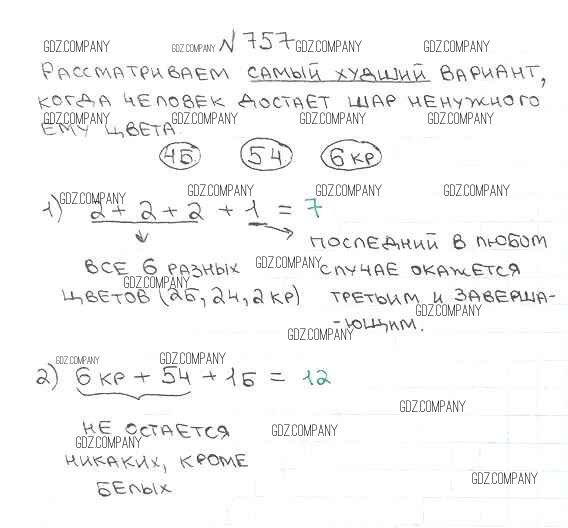 GDZ.COMPANY GDZ.COMPANY N 757 GDZ.COMPANY GDZ.COMPANY
РАССМАТРИВАЕМ САМЫЙ ХУДШИЙ ВАРИАНТ,
КОГДА ЧЕЛОВЕК ДОСТАЕТ ШАР НЕНУЖНОГО
GDZ.COMPANY GDZ.COMPANY GDZ.COMPANY GDZ.COMPANY
ЕМУ ЦВЕТА.
4Б 5Ч 6 КР
GDZ.COMPANY GDZ.COMPANY GDZ.COMPANY GDZ.COMPANY
1) 2 + 2 + 2 + 1 = 7
ПОСЛЕДНИЙ В ЛЮБОМ
ВСЕ 6 РАЗНЫХ GDZ.COMPANY СЛУЧАЕ ОКАЖЕТСЯ
GDZ.COMPANY
ЦВЕТОВ (2Б, 2Ч, 2 КР) ТРЕТЬИМ И ЗАВЕРША-
GDZ.COMPANY
-ЮЩИМ.
GDZ.COMPANY
GDZ.COMPANY GDZ.COMPANY
2) 6 КР + 5Ч + 1Б = 12
GDZ.COMPANY
НЕ ОСТАЕТСЯ GDZ.COMPANY
GDZ.COMPANY
НИКАКИХ, КРОМЕ
GDZ.COMPANY
БЕЛЫХ